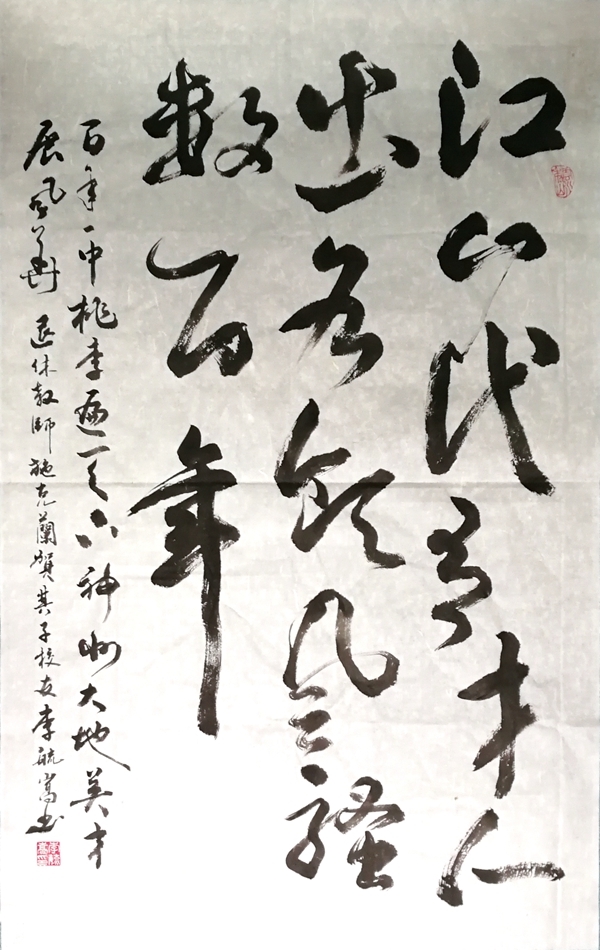 江山代有才人
出各领风骚
数百年
百年一中桃李遍天下神州大地英才
展风华 退休教师施克蘭贺其子校友李毓嵩书